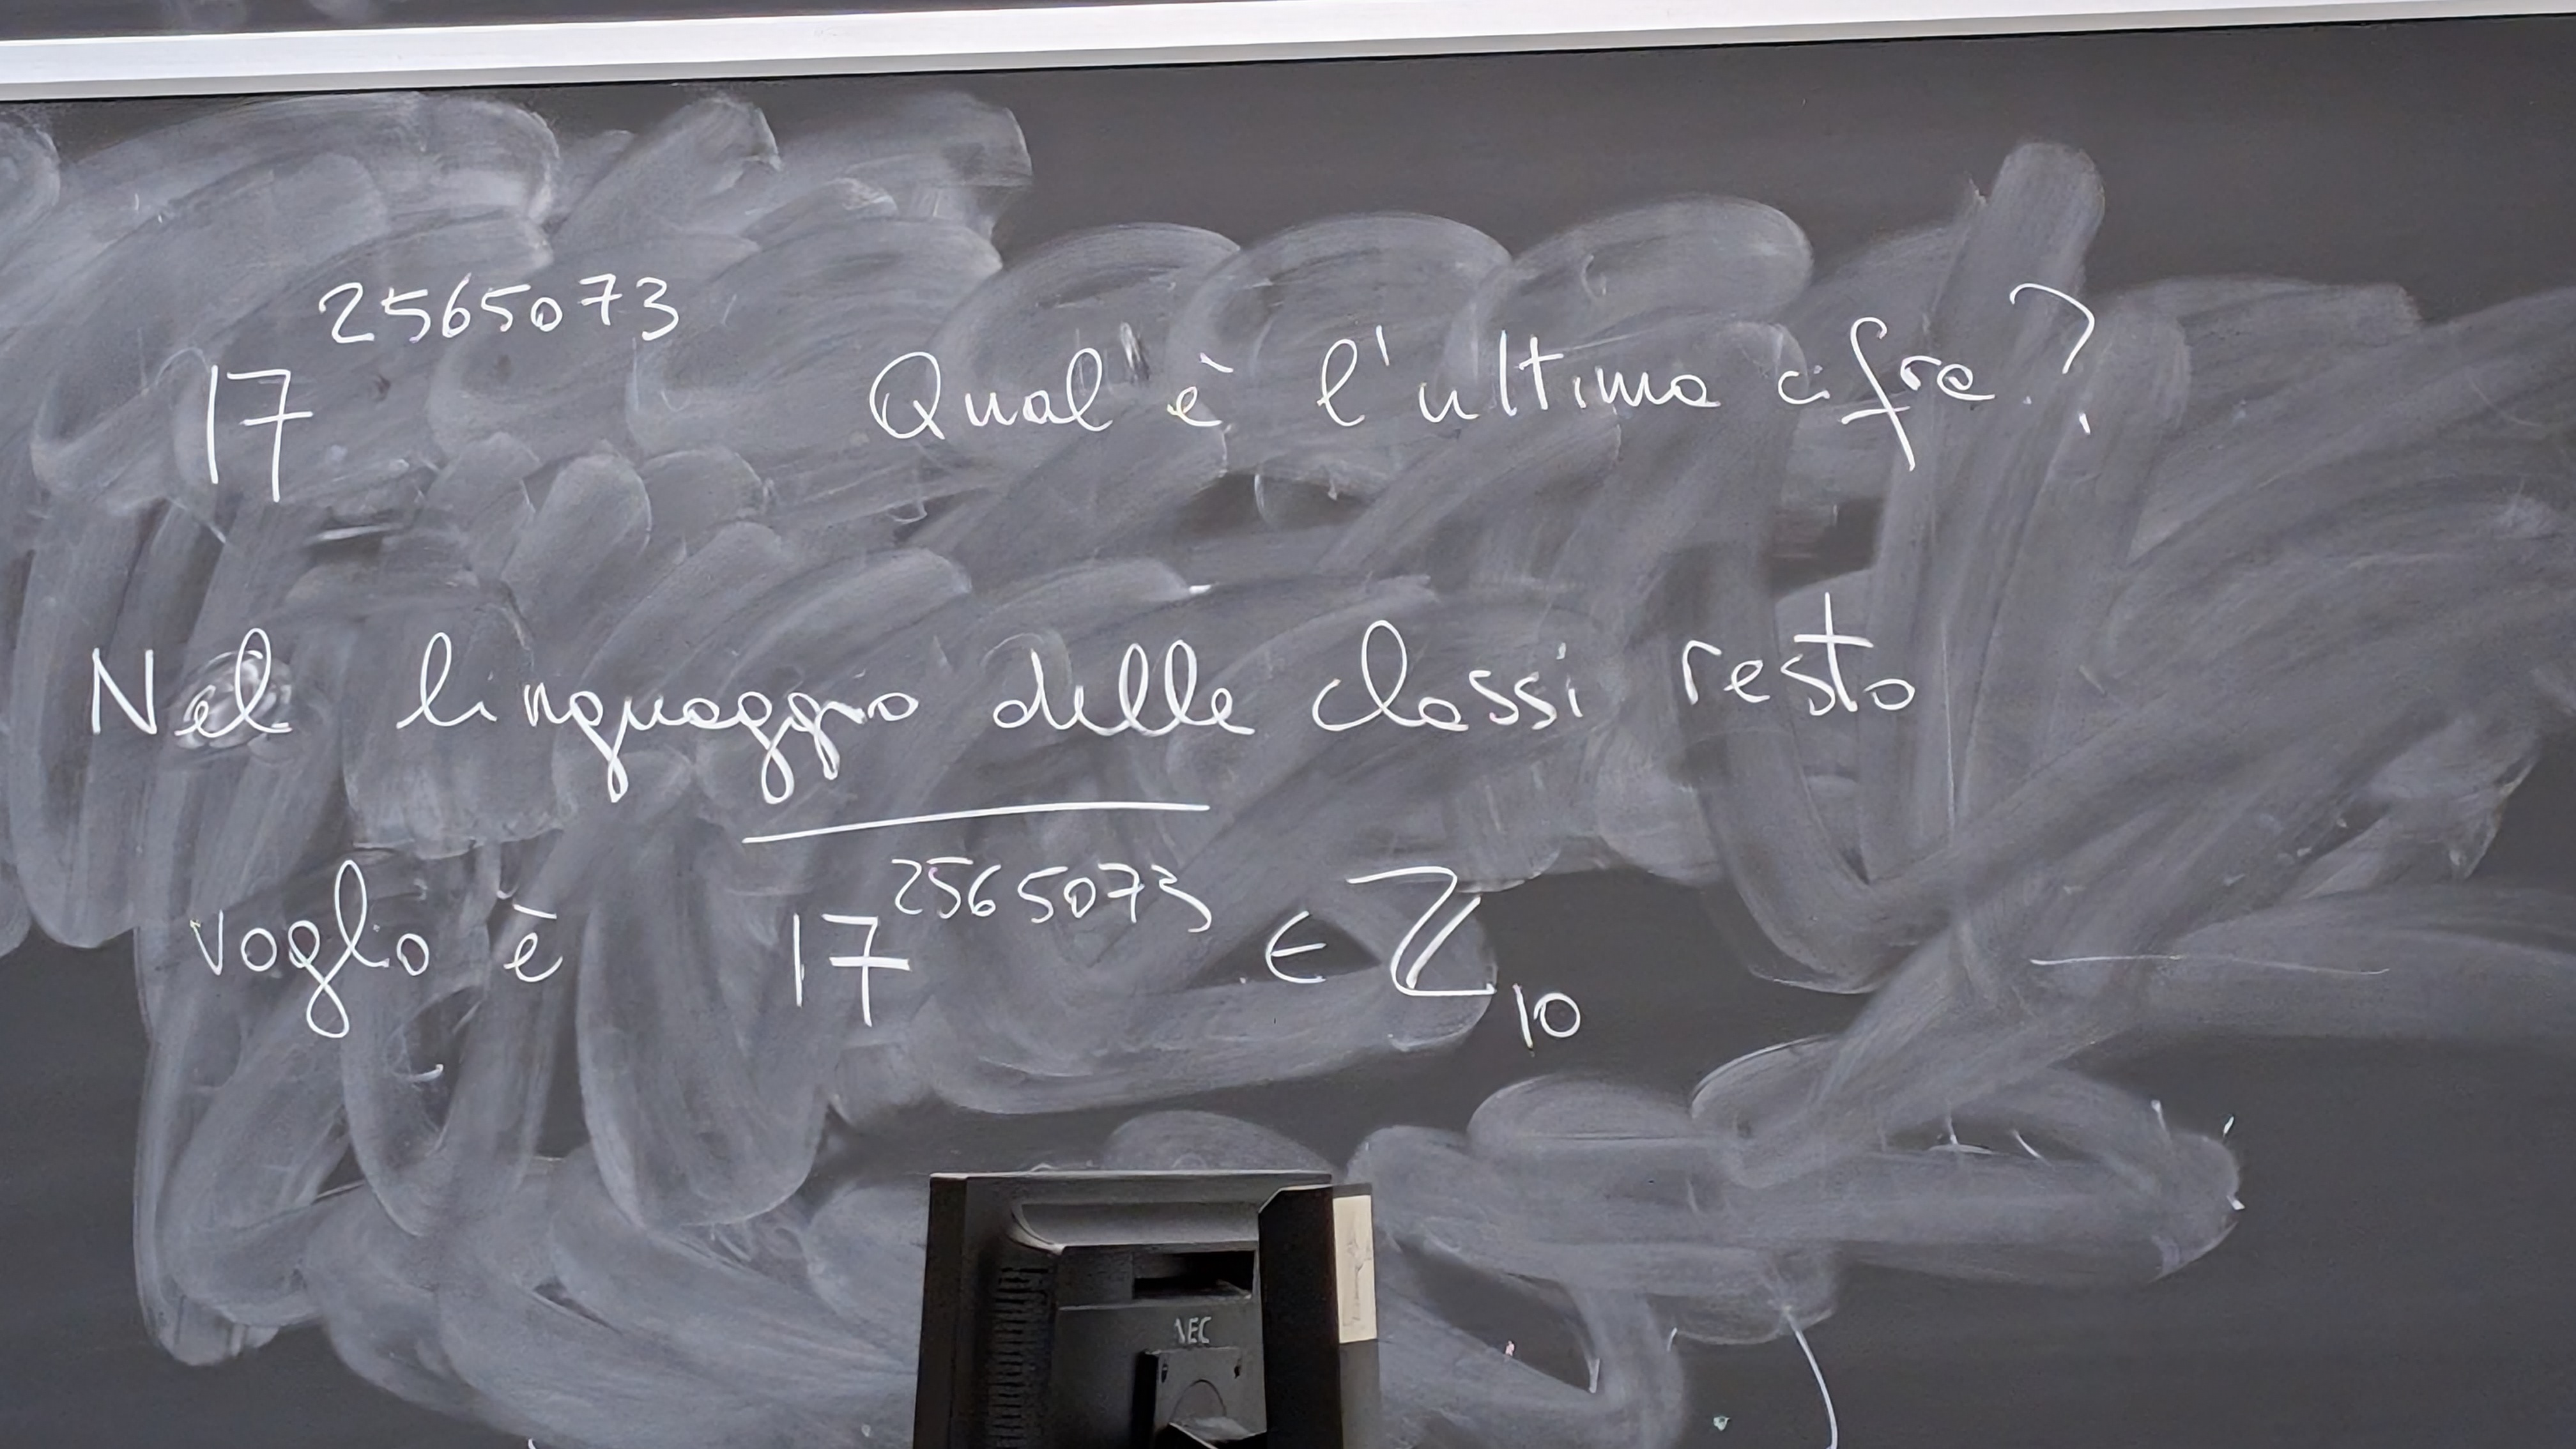 17^2565073 Qual'è l'ultima cifra?
Nel linguaggio delle classi resto
voglio è \overline{17^2565073} ∈ ℤ_10
NEC